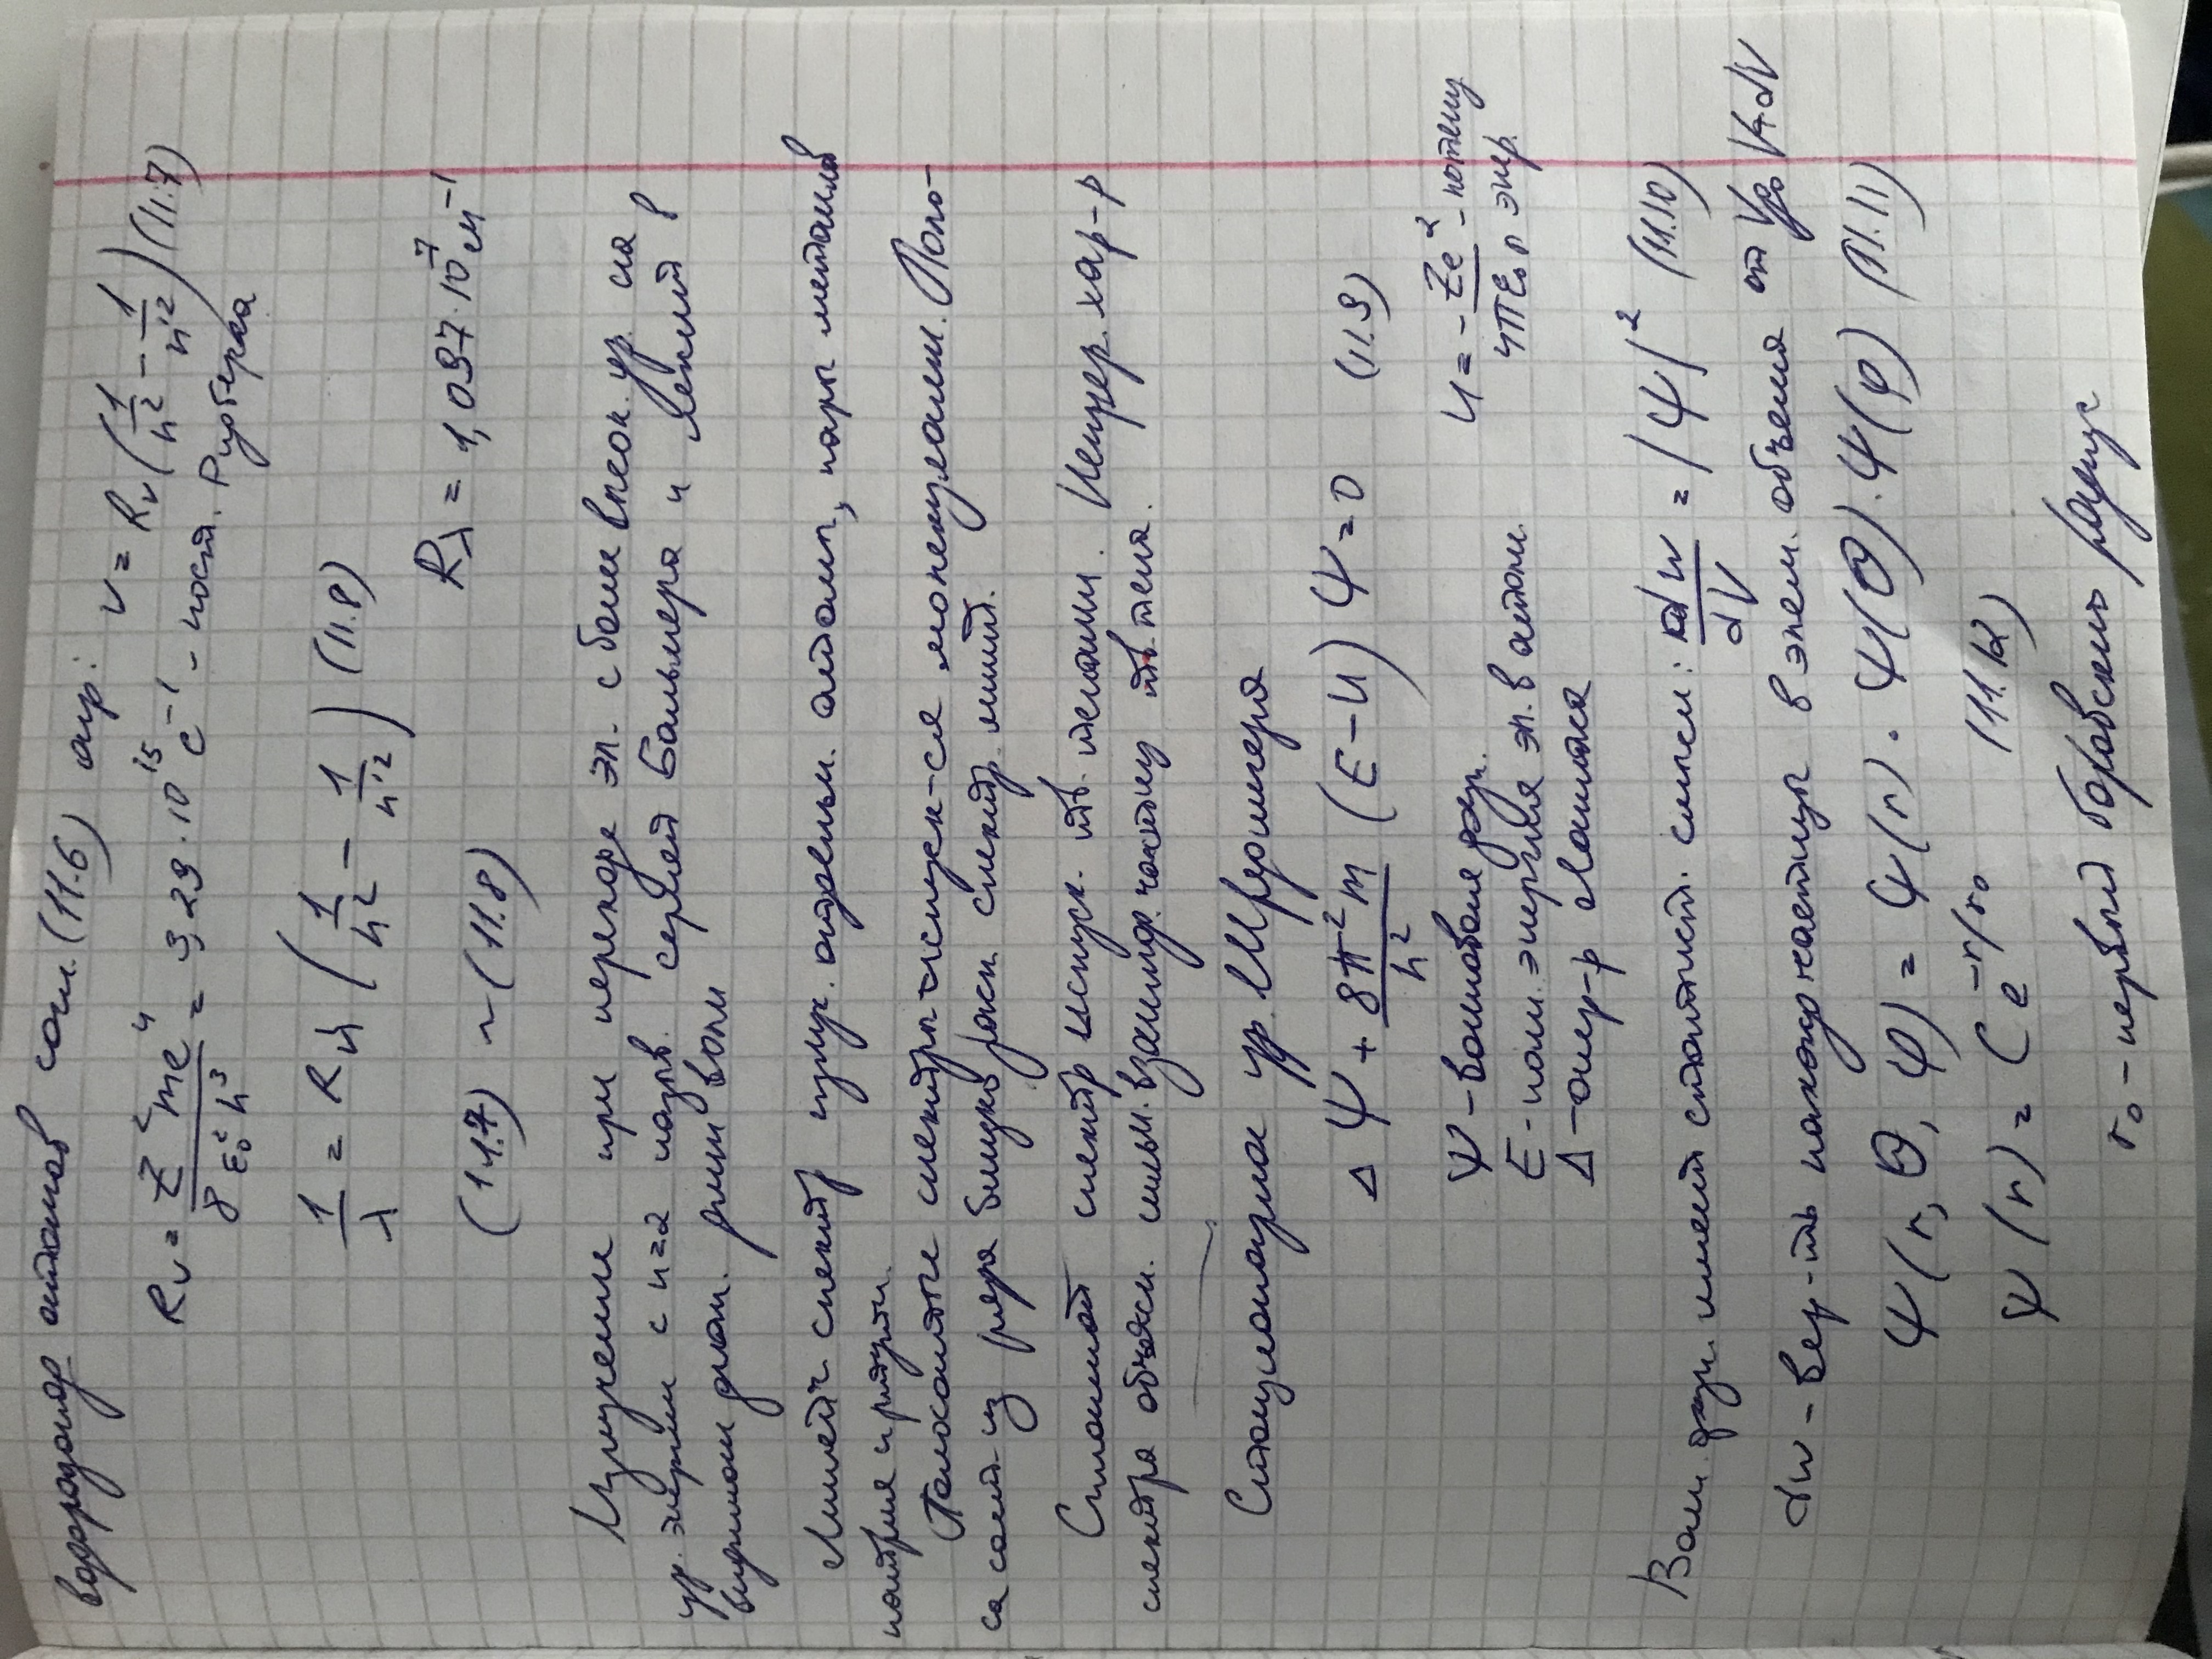 водородопод атомов согл. (11.6) опр: ν = Rν (1/n² − 1/n'²) (11.7)
Rν = Z²me⁴/8ε₀²h³ = 3,29·10¹⁵ с⁻¹ – пост. Ридберга
1/λ = Rλ (1/n² − 1/n'²) (11.8)
Rλ = 1,097·10⁷ м⁻¹
(11.7) ~ (11.8)
Излучение при переходе эл. с более высок. ур. на
ур. энергии с n=2 назыв. серией Бальмера и лежит в
видимом диап. длин волн
Линейч спектр излуч. отдельн. атомы, пары металлов
натрия и ртути.
Полосатые спектры испуск-ся молекулами. Поло-
са сост. из ряда близко расп. спектр. линий.
Сплошной спектр испуск. тв. телами. Непрер. хар-р
спектра объясн. сильн. взаимод. частиц тв. тела.
Стационарное ур. Шредингера
Δ Ψ + 8π²m/h² (E − U) Ψ = 0 (11.9)
Ψ – волновая функ.
U = − Ze²/4πε₀r – потенц
энер.
E – полн. энергия эл. в атоме.
Δ – опер-р Лапласа
Волн. функ. имеет статист. смысл: dw/dV = |Ψ|² (11.10)
dw – вер-ть нахожд частицы в элем. объема от V до V+dV
Ψ(r, θ, φ) = Ψ(r) · Ψ(θ) · Ψ(φ) (11.11)
Ψ(r) = C e^(−r/r₀) (11.12)
r₀ – первый боровский радиус